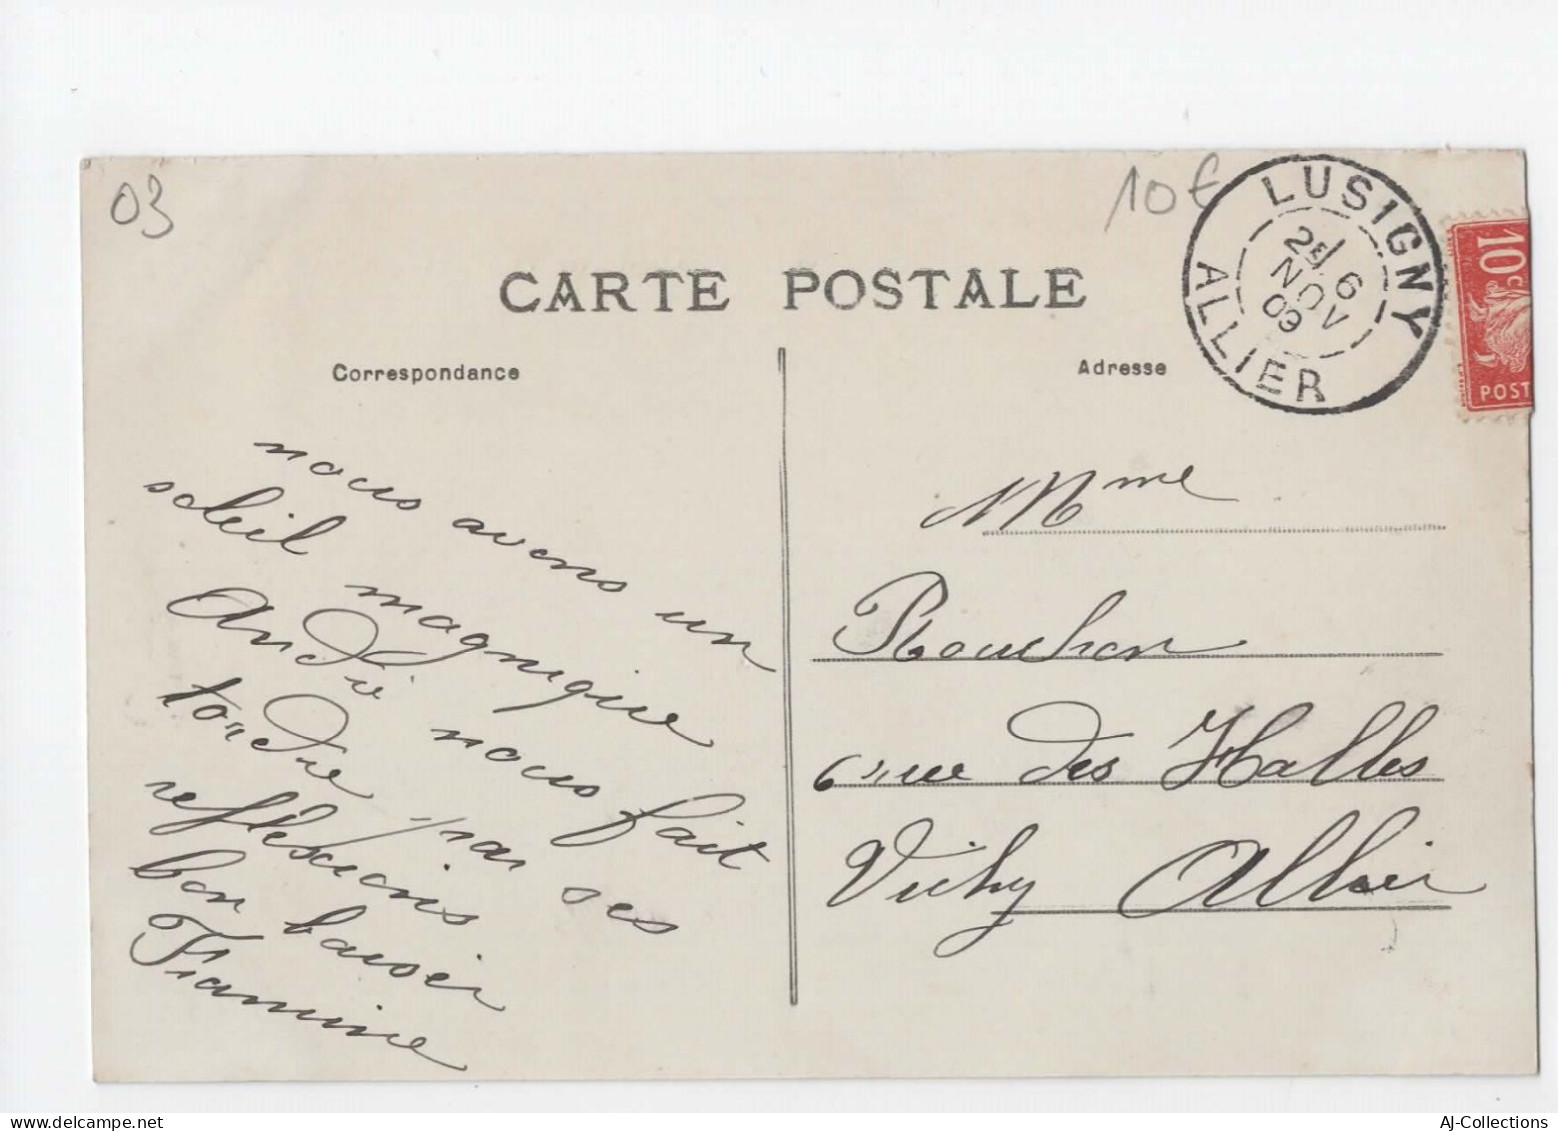 03
10€
LUSIGNY
ALLIER
2E 6
NOV
09
10c
POST
CARTE POSTALE
Correspondance
Adresse
nous avons un
soleil magnifique
André nous fait
tordre par ses
reflexions
bon baiser
Mme
Rouchon
6 rue des Halles
Vichy Allier
AJ-Collections